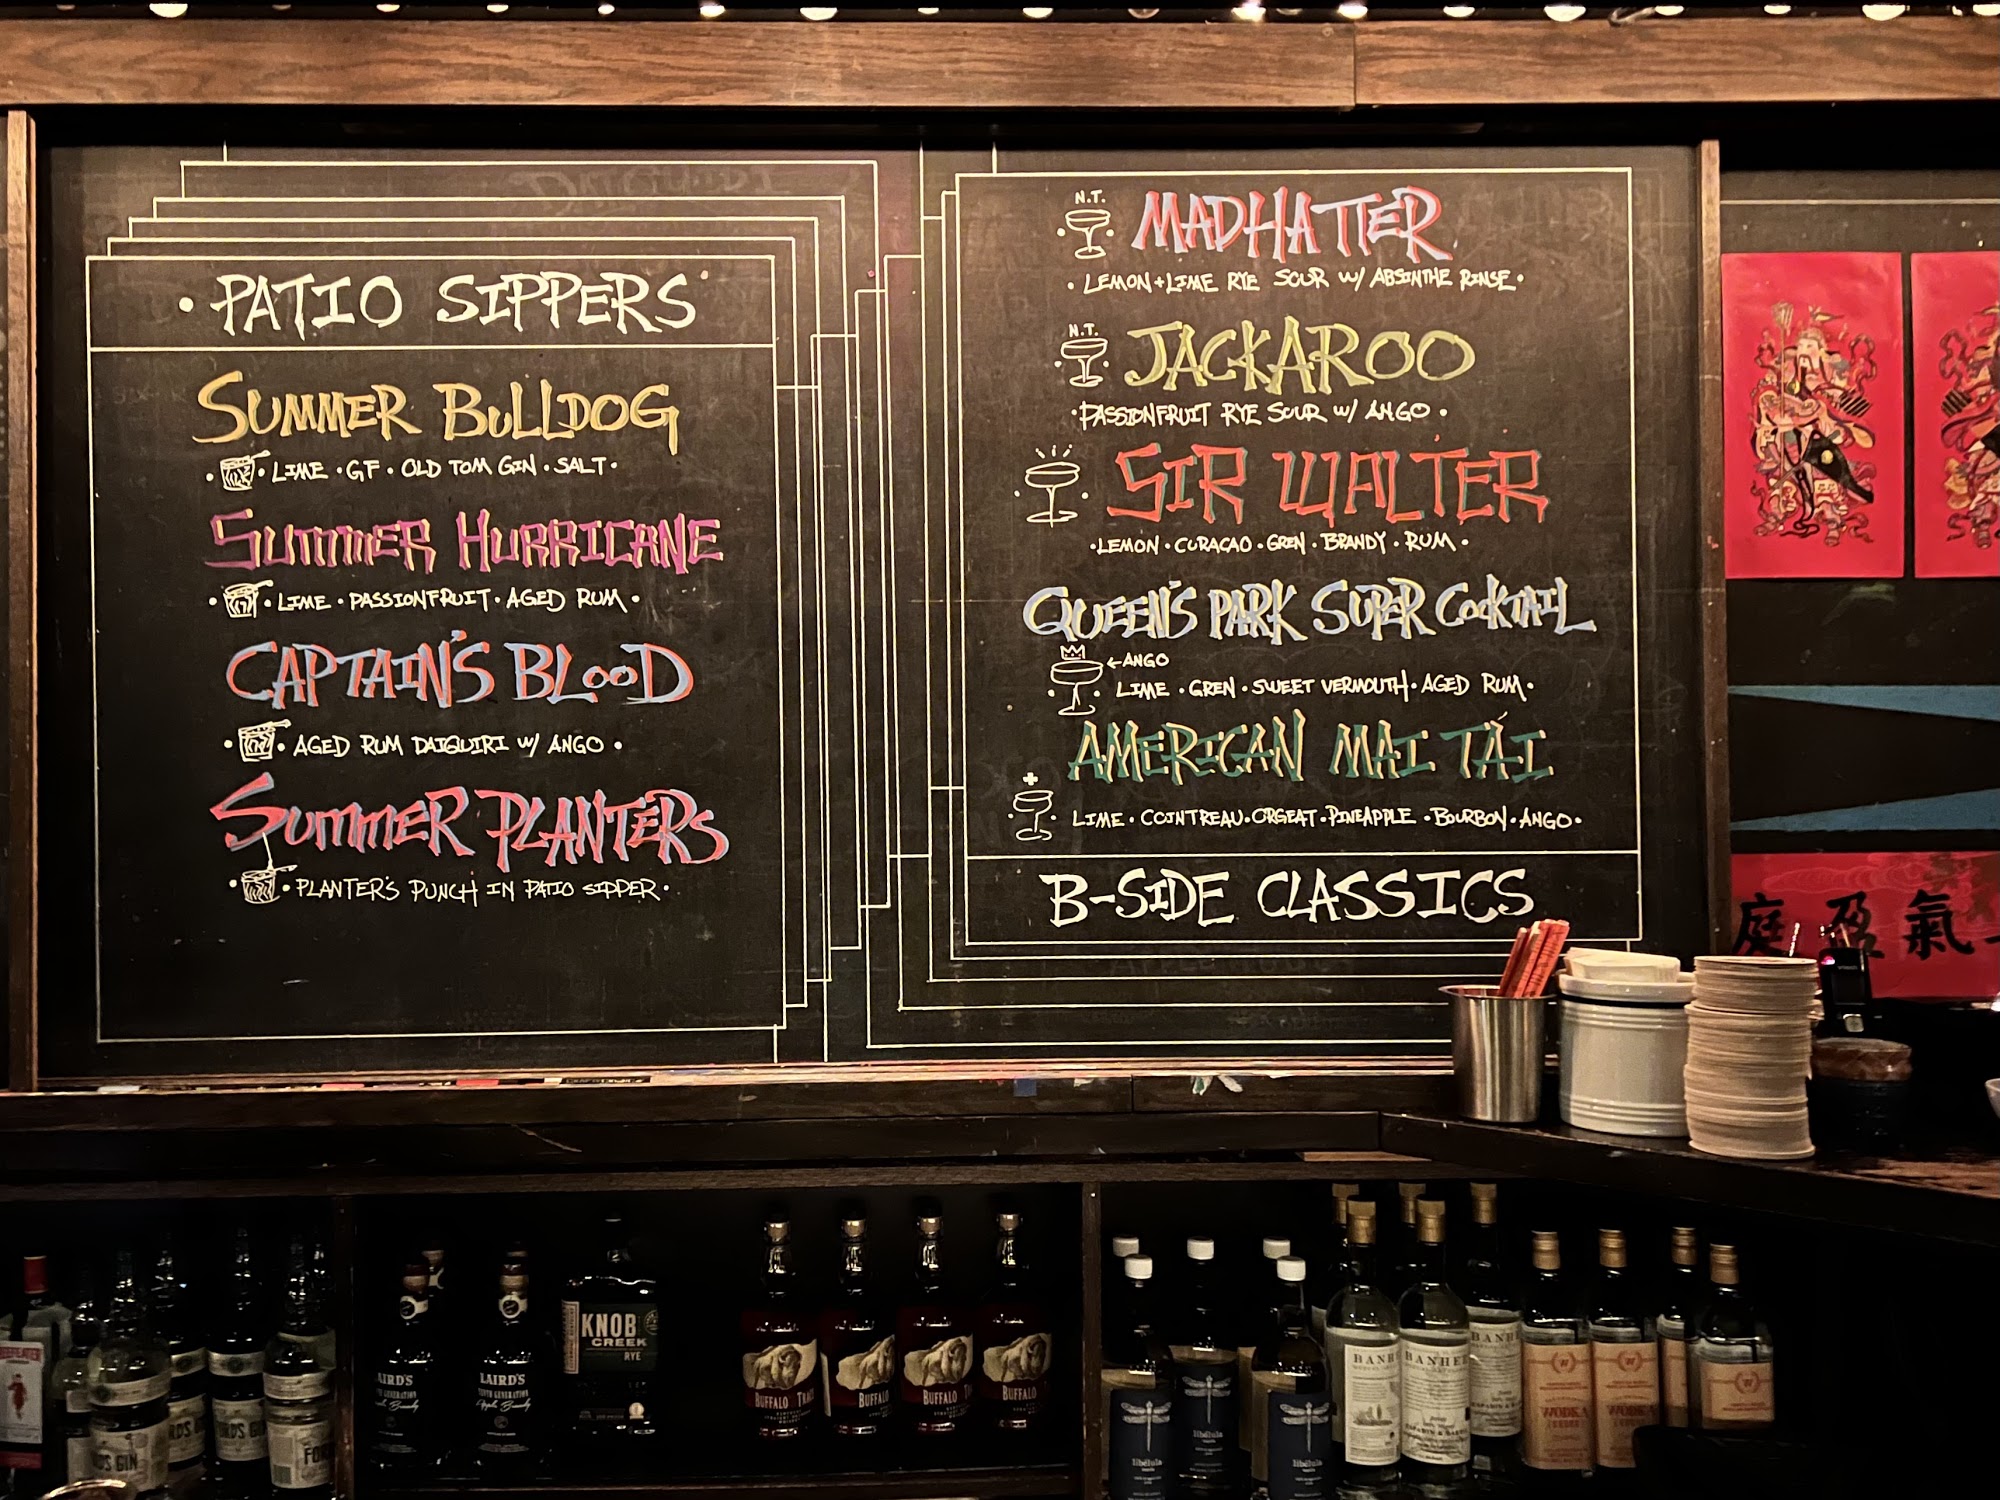 · PATIO SIPPERS ·
SUMMER BULLDOG
· LIME · GF · OLD TOM GIN · SALT ·
SUMMER HURRICANE
· LIME · PASSIONFRUIT · AGED RUM ·
CAPTAIN'S BLOOD
· AGED RUM DAIQUIRI W/ ANGO ·
SUMMER PLANTERS
· PLANTER'S PUNCH IN PATIO SIPPER ·
N.T.
MADHATTER
· LEMON + LIME RYE SOUR W/ ABSINTHE RINSE ·
N.T.
JACKAROO
· PASSIONFRUIT RYE SOUR W/ ANGO ·
SIR WALTER
· LEMON · CURACAO · GREN · BRANDY · RUM ·
QUEEN'S PARK SUPER COCKTAIL
← ANGO
LIME · GREN · SWEET VERMOUTH · AGED RUM ·
AMERICAN MAI TAI
LIME · COINTREAU · ORGEAT · PINEAPPLE · BOURBON · ANGO ·
B-SIDE CLASSICS
庭盈氣
BEEFEATER
FORD'S GIN
LAIRD'S
Apple Brandy
KNOB
CREEK
RYE
BUFFALO TRACE
BUFFALO
BUFFALO
BUFFALO
libélula
libélula
libélula
BANHEZ
BANHEZ
BANHEZ
WODKA
WODKA